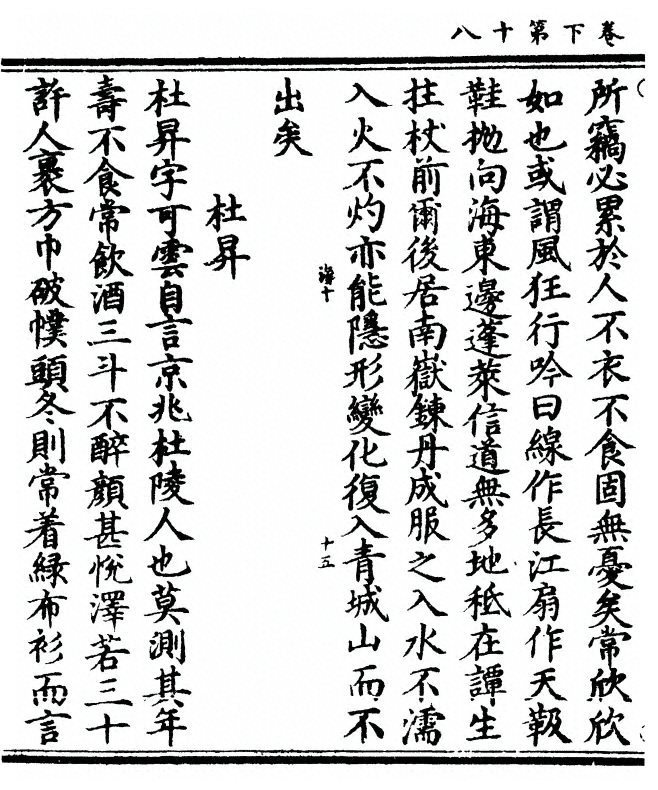 卷下第十八
所竊必累於人不衣不食固無憂矣常欣欣
如也或謂風狂行吟曰線作長江扇作天靸
鞋抛向海東邊蓬萊信道無多地秖在譚生
拄杖前爾後居南嶽鍊丹成服之入水不濡
入火不灼亦能隱形變化復入青城山而不
海十
十五
出矣
杜昇
杜昇字可雲自言京兆杜陵人也莫測其年
壽不食常飲酒三斗不醉顏甚悅澤若三十
許人裹方巾破幞頭冬則常着緑布衫而言